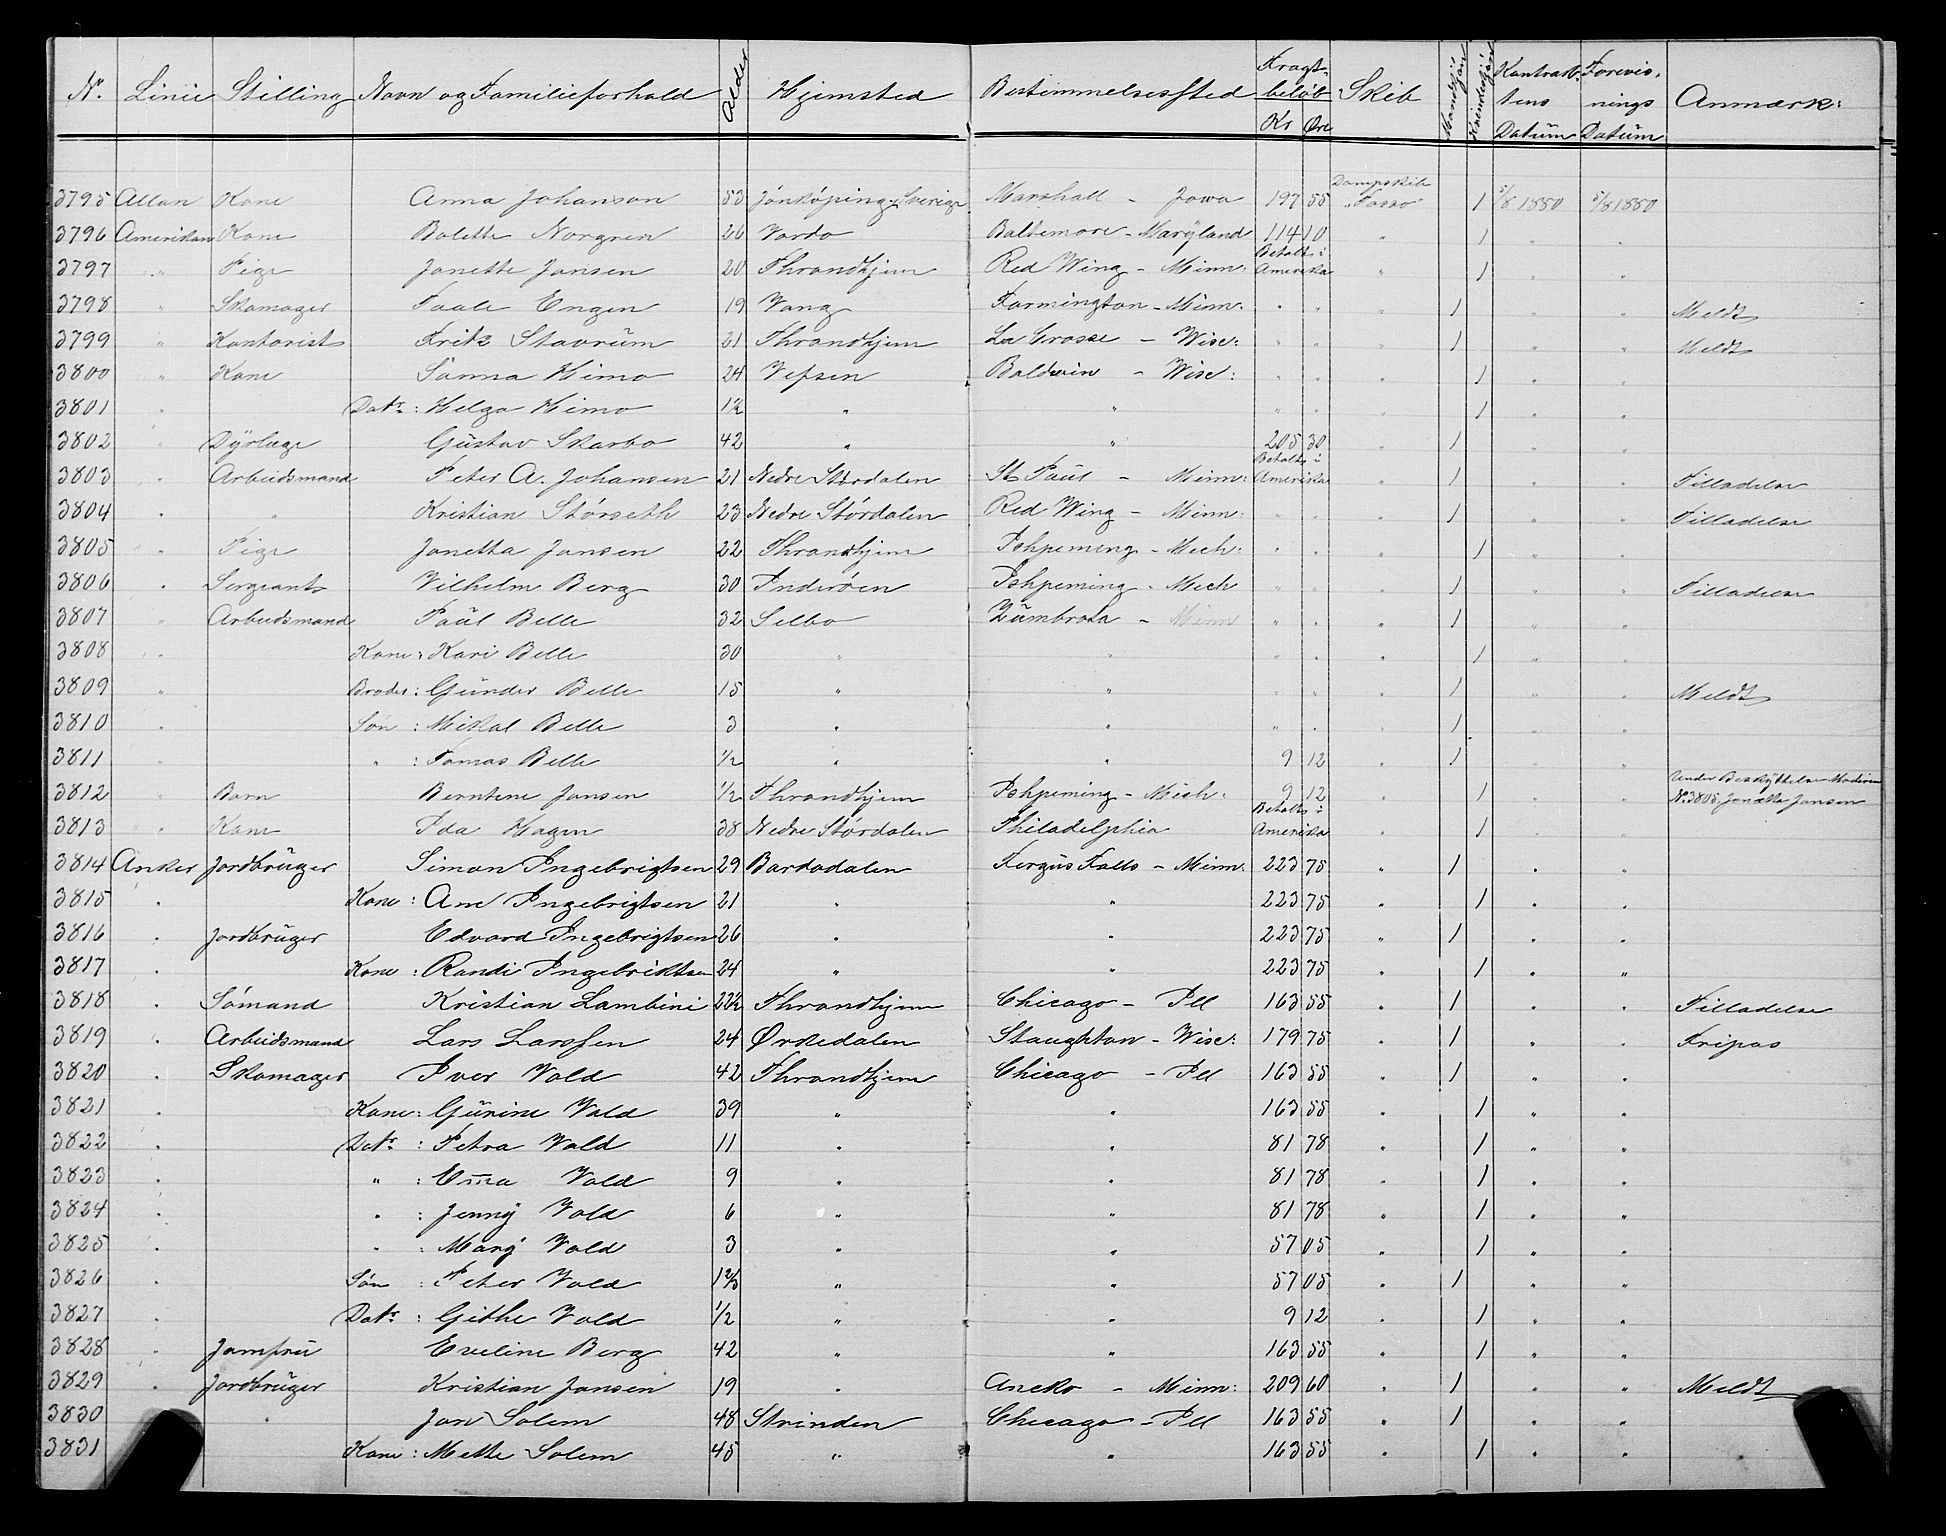 N. Linie Stilling Navn og Familieforhold Alder Hjemsted Bestemmelsessted Fragtbeløb Kr Øre Skib Mandkjøn Kvindekjøn Kontraktens Datum Forevisnings Datum Anmærk:
3795 Allan Kone Anna Johanson 53 Jönköping, Sverige Marshall - Jowa 197 55 Dampskib "Tasso" 1 5/8 1880 5/8 1880
3796 Amerikan Kone Bolette Norgren 26 Vardo Baltemore - Maryland 114 10 " 1 " "
3797 " " Pige Janette Jansen 20 Throndhjem Red Wing - Minn: Betalt i Amerika " 1 " "
3798 " Skomager Paale Engen 19 Vang Farmington - Minn: " " " 1 " " Meldt
3799 " Kontorist Fritz Stavrum 21 Throndhjem La Crosse - Wisc: " " " 1 " " Meldt
3800 " Kone Sanna Himo 24 Vefsen Baldwin - Wisc: " " " 1 " "
3801 " Datr: Helga Himo 1½ " " " " " 1 " "
3802 " Dyrlæge Gustav Skarbo 42 " " 205 30 " 1 " "
3803 " Arbeidsmand Peter A. Johansen 21 Nedre Stördalen St Paul - Minn: Betalt i Amerika " 1 " " Tilladelse
3804 " " Kristian Störseth 23 Nedre Stördalen Red Wing - Minn: " " " 1 " " Tilladelse
3805 " Pige Janetta Jansen 22 Throndhjem Ishpeming - Mech: " " " 1 " "
3806 " Sergeant Vilhelm Berg 30 Inderöen Ishpeming - Mech " " " 1 " " Tilladelse
3807 " Arbeidsmand Paul Belle 32 Selbo Zumbrota - Minn " " " 1 " "
3808 " Kone: Kari Belle 30 " " " " " 1 " "
3809 " Broder: Gunder Belle 15 " " " " " 1 " " Meldt
3810 " Søn: Mikal Belle 3 " " " " " 1 " "
3811 " ": Tomas Belle ½ " " 9 12 " 1 " "
3812 " Barn Berntine Jansen ½ Throndhjem Ishpeming - Mich: 9 12 " 1 " " Under Beskyttelse Moderen No 3805, Janetta Jansen
3813 " " Kone Ida Hagen 38 Nedre Stördalen Philadelphia Betalt i Amerika " 1 " "
3814 Anker Jordbruger Simon Ingebrigtsen 29 Bardodalen Fergus Falls - Minn: 223 75 " 1 " "
3815 " Kone: Ane Ingebrigtsen 21 " " 223 75 " 1 " "
3816 " Jordbruger Edvard Ingebrigtsen 26 " " 223 75 " 1 " "
3817 " Kone: Randi Ingebriktsen 24 " " 223 75 " 1 " "
3818 " Sömand Kristian Lambini 22½ Throndhjem Chicago - Ill 163 55 " 1 " " Tilladelse
3819 " Arbeidsmand Lars Larssen 24 Ørkedalen Staughton - Wisc: 179 75 " 1 " " Fripas
3820 " Skomager Iver Vold 42 Throndhjem Chicago - Ill 163 55 " 1 " "
3821 " Kone: Gurine Vold 39 " " 163 55 " 1 " "
3822 " Datr: Petra Vold 11 " " 81 78 " 1 " "
3823 " ": Em̅a Vold 9 " " 81 78 " 1 " "
3824 " ": Jenny Vold 6 " " 81 78 " 1 " "
3825 " ": Mary Vold 3 " " 57 05 " 1 " "
3826 " Søn: Peter Vold 1⅔ " " 57 05 " 1 " "
3827 " Datr: Githe Vold ½ " " 9 12 " 1 " "
3828 " Jomfru Eveline Berg 42 " " 163 55 " 1 " "
3829 " Jordbruger Kristian Jansen 19 " Anoka - Minn: 209 60 " 1 " " Meldt
3830 " Jon Solem 48 Strinden Chicago - Ill 163 55 " 1 " "
3831 Kone: Mette Solem 45 " " 163 55 " 1 " "